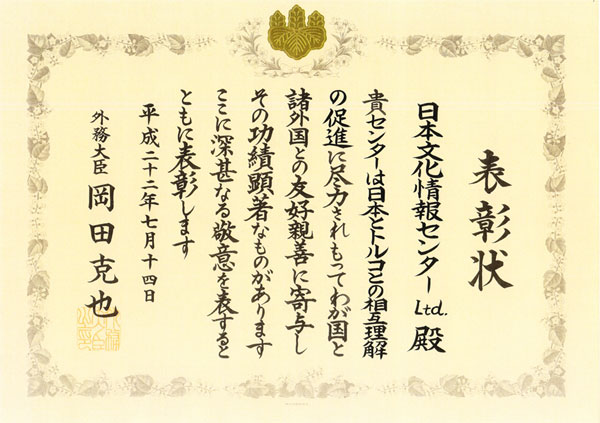 表彰状
日本文化情報センターLtd. 殿
貴センターは日本とトルコとの相互理解
の促進に尽力されもってわが国と
諸外国との友好親善に寄与し
その功績顕著なものがあります
ここに深甚なる敬意を表すると
ともに表彰します
平成二十二年七月十四日
外務大臣 岡田克也